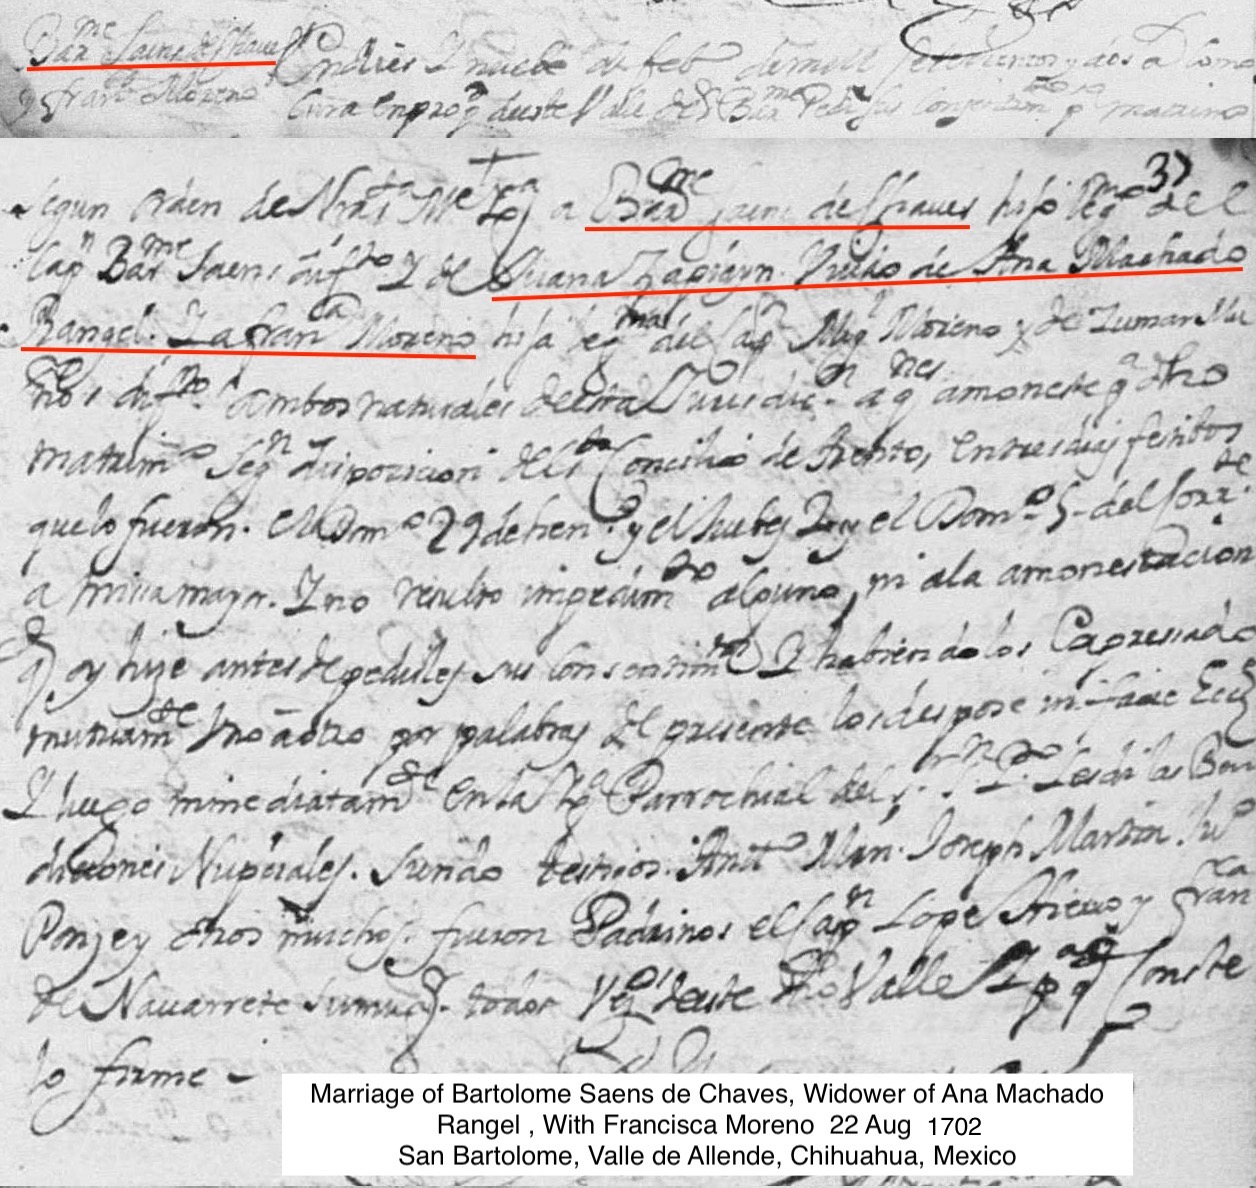 Bar.me Saens de Chaves En dies Y nuebe de feb.o de mill setecientos y dos a. Como
y fran.ca Moreno Cura en prop. deste Valle de S. Bar.me Pedi sus consentim.tos p.a matrimo
37
segun orden de Nra S.ta M.e Yg.a a Bar.me Saens de Chaues hijo leg.mo del
Cap.n Bar.me Saens dif.to Y de Juana Zapien. Viudo de Ana Machado
Rangel. Y a fran.ca Moreno hija leg.ma del Cap.n Mig.l Moreno y de
dif.tos ambos naturales desta Jurisdic.n a q.nes amoneste p.a dho
matrim.o seg.n disposicion del s.to Concilio de trento, en tres dias festibos
que lo fueron. el Dom.o 29 de hen.o y el Juebes 2 y el Dom.o 5 del Corr.te
a missa mayor. Y no resulto impedim.to alguno, ni a la amonestacion
q. oy hize antes de pedirles sus consentim.tos Y habiendolos Expressado
mutuam.te Vno a otro por palabras de presente los despose in facie Ecc.
Y luego immediatam.te en la Yg.a Parrochial del les di las Ben
diciones Nupciales. siendo testigos. Ant.o Joseph Martin
Ponze y otros muchos. fueron Padrinos el Cap.n Lope de Hierro y fran.ca
de Nauarrete su mug.r todos Vez.s deste dho Valle Y p.a q. Conste
lo firme
Marriage of Bartolome Saens de Chaves, Widower of Ana Machado
Rangel , With Francisca Moreno 22 Aug 1702
San Bartolome, Valle de Allende, Chihuahua, Mexico